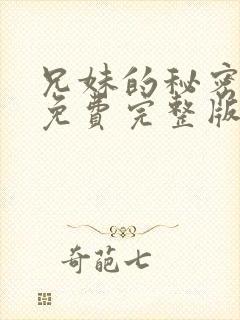 兄妹的秘密
免费完整版
奇葩七